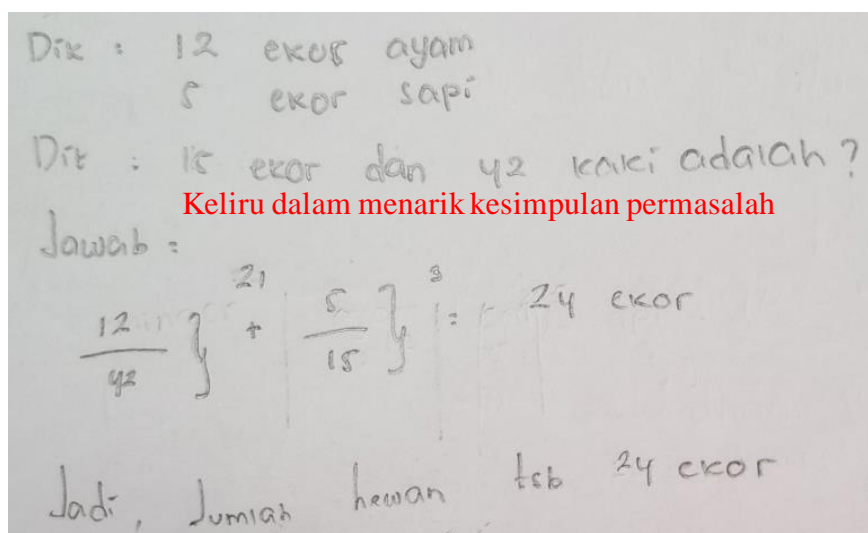 Dik : 12 ekor ayam
5 ekor sapi
Dit : 15 ekor dan 42 kaki adalah?
Keliru dalam menarik kesimpulan permasalah
Jawab :
21 3
12 + 5 = 24 ekor
42 15
Jadi, Jumlah hewan tsb 24 ekor